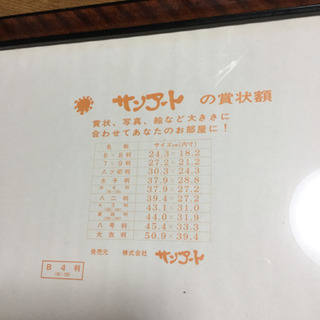 サンアートの賞状額
賞状、写真、絵など大きさに
合わせてあなたのお部屋に!
名称 サイズcm(内寸)
6・8判 24.3×18.2
7・9判 27.2×21.2
八ツ切判 30.3×24.2
太子判 37.9×28.8
37.9×27.2
八二判 39.4×27.3
43.1×31.0
44.0×31.9
八号判 45.4×33.3
大台判 50.9×39.4
B4判
発売元 株式会社 サンアート